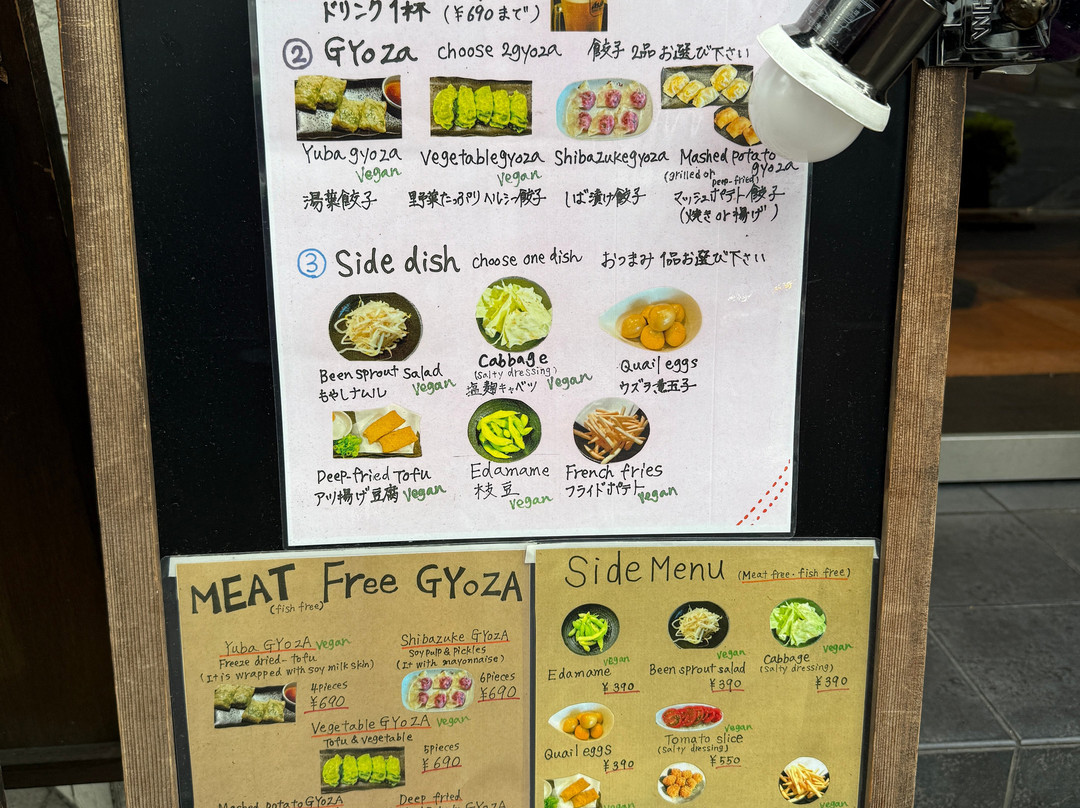 ドリンク1杯 (¥690まで)
② GYoza choose 2gyoza 餃子 2品お選び下さい
Yuba gyoza
vegan
湯葉餃子
Vegetable gyoza
vegan
野菜たっぷりヘルシー餃子
Shibazuke gyoza
しば漬け餃子
Mashed potato gyoza
(grilled or deep-fried)
マッシュポテト餃子
(焼き or 揚げ)
③ Side dish choose one dish おつまみ 1品お選び下さい
Been sprout Salad
もやしナムル vegan
Cabbage
(salty dressing)
塩麹キャベツ vegan
Quail eggs
ウズラ煮玉子
Deep-fried Tofu
アツ揚げ豆腐 vegan
Edamame
枝豆
vegan
French fries
フライドポテト vegan
MEAT Free GYoZA
(fish free)
Yuba GYoZA vegan
Freeze dried-tofu
(It is wrapped with soy milk skin)
4pieces
¥690
Shibazuke GYoZA
Soy pulp & Pickles
(It with mayonnaise)
6pieces
¥690
Vegetable GYoZA vegan
Tofu & vegetable
5pieces
¥690
Mashed potato GYOZA
Deep fried
Side Menu (Meat free・fish free)
vegan
Edamame
¥390
vegan
Been sprout salad
¥390
vegan
Cabbage
(Salty dressing)
¥390
Quail eggs
¥390
vegan
Tomato slice
(Salty dressing)
¥550
vegan
vegan